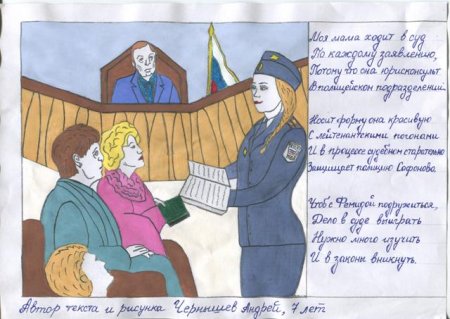 Моя мама ходит в суд
По каждому заявлению,
Потому что она юрисконсульт
В полицейском подразделении.
Носит форму она красивую
С лейтенантскими погонами
И в процессе судебном старательно
Защищает полицию Сафоново.
Чтоб с Фемидой подружиться,
Дело в суде выиграть
Нужно много изучить
И в законы вникнуть.
Автор текста и рисунка Чернышев Андрей, 7 лет